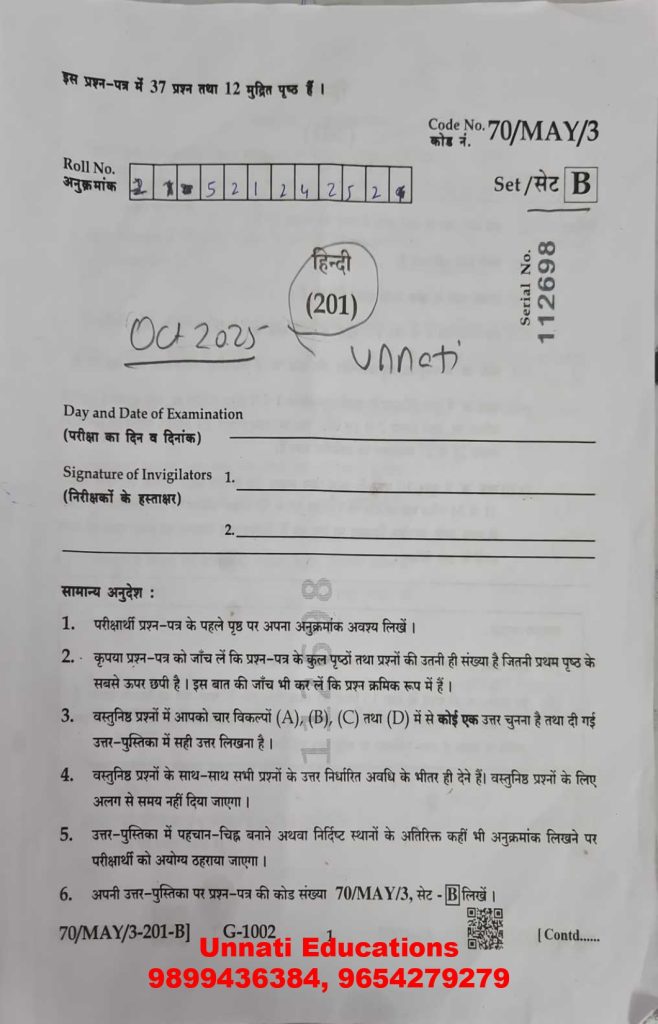 इस प्रश्न-पत्र में 37 प्रश्न तथा 12 मुद्रित पृष्ठ हैं ।
Code No. 70/MAY/3
कोड नं.
Roll No.
अनुक्रमांक
Set / सेट B
हिन्दी
(201)
Serial No.
112698
Oct 2025
Unnati
Day and Date of Examination
(परीक्षा का दिन व दिनांक)
Signature of Invigilators 1.
(निरीक्षकों के हस्ताक्षर)
2.
सामान्य अनुदेश :
1. परीक्षार्थी प्रश्न-पत्र के पहले पृष्ठ पर अपना अनुक्रमांक अवश्य लिखें ।
2. कृपया प्रश्न-पत्र को जाँच लें कि प्रश्न-पत्र के कुल पृष्ठों तथा प्रश्नों की उतनी ही संख्या है जितनी प्रथम पृष्ठ के
सबसे ऊपर छपी है । इस बात की जाँच भी कर लें कि प्रश्न क्रमिक रूप में हैं ।
3. वस्तुनिष्ठ प्रश्नों में आपको चार विकल्पों (A), (B), (C) तथा (D) में से कोई एक उत्तर चुनना है तथा दी गई
उत्तर-पुस्तिका में सही उत्तर लिखना है ।
4. वस्तुनिष्ठ प्रश्नों के साथ-साथ सभी प्रश्नों के उत्तर निर्धारित अवधि के भीतर ही देने हैं। वस्तुनिष्ठ प्रश्नों के लिए
अलग से समय नहीं दिया जाएगा ।
5. उत्तर-पुस्तिका में पहचान-चिह्न बनाने अथवा निर्दिष्ट स्थानों के अतिरिक्त कहीं भी अनुक्रमांक लिखने पर
परीक्षार्थी को अयोग्य ठहराया जाएगा ।
6. अपनी उत्तर-पुस्तिका पर प्रश्न-पत्र की कोड संख्या 70/MAY/3, सेट - B लिखें ।
70/MAY/3-201-B] G-1002 1 [ Contd......
Unnati Educations
9899436384, 9654279279